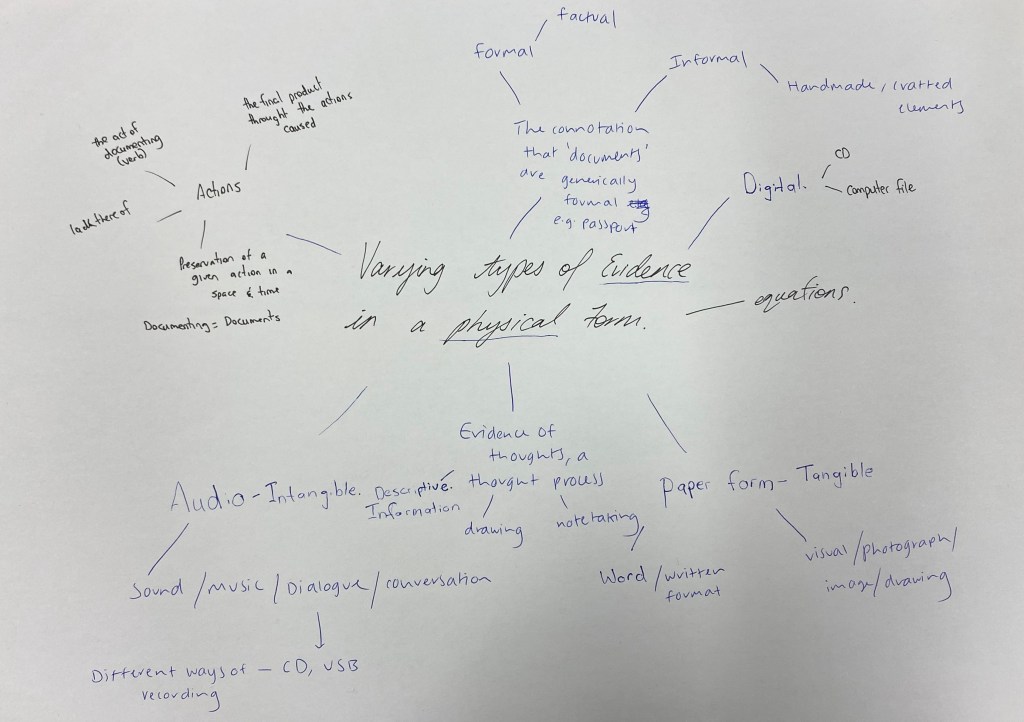 factual
formal
Informal
Handmade, crafted
elements
The connotation
that 'documents'
are generically
formal
e.g. passport
the final product
throught the actions
caused
the act of
documenting
(verb)
Actions
lack there of
Preservation of a
given action in a
space & time
Documenting = Documents
Digital.
CD
computer file
Varying types of Evidence
in a physical form.
equations.
Evidence of
thoughts, a
thought process
Descriptive
Information
drawing
notetaking
Audio - Intangible.
Sound / Music / Dialogue / conversation
Different ways of - CD, USB
recording
Paper form - Tangible
Word / written
format
visual / photograph /
image / drawing